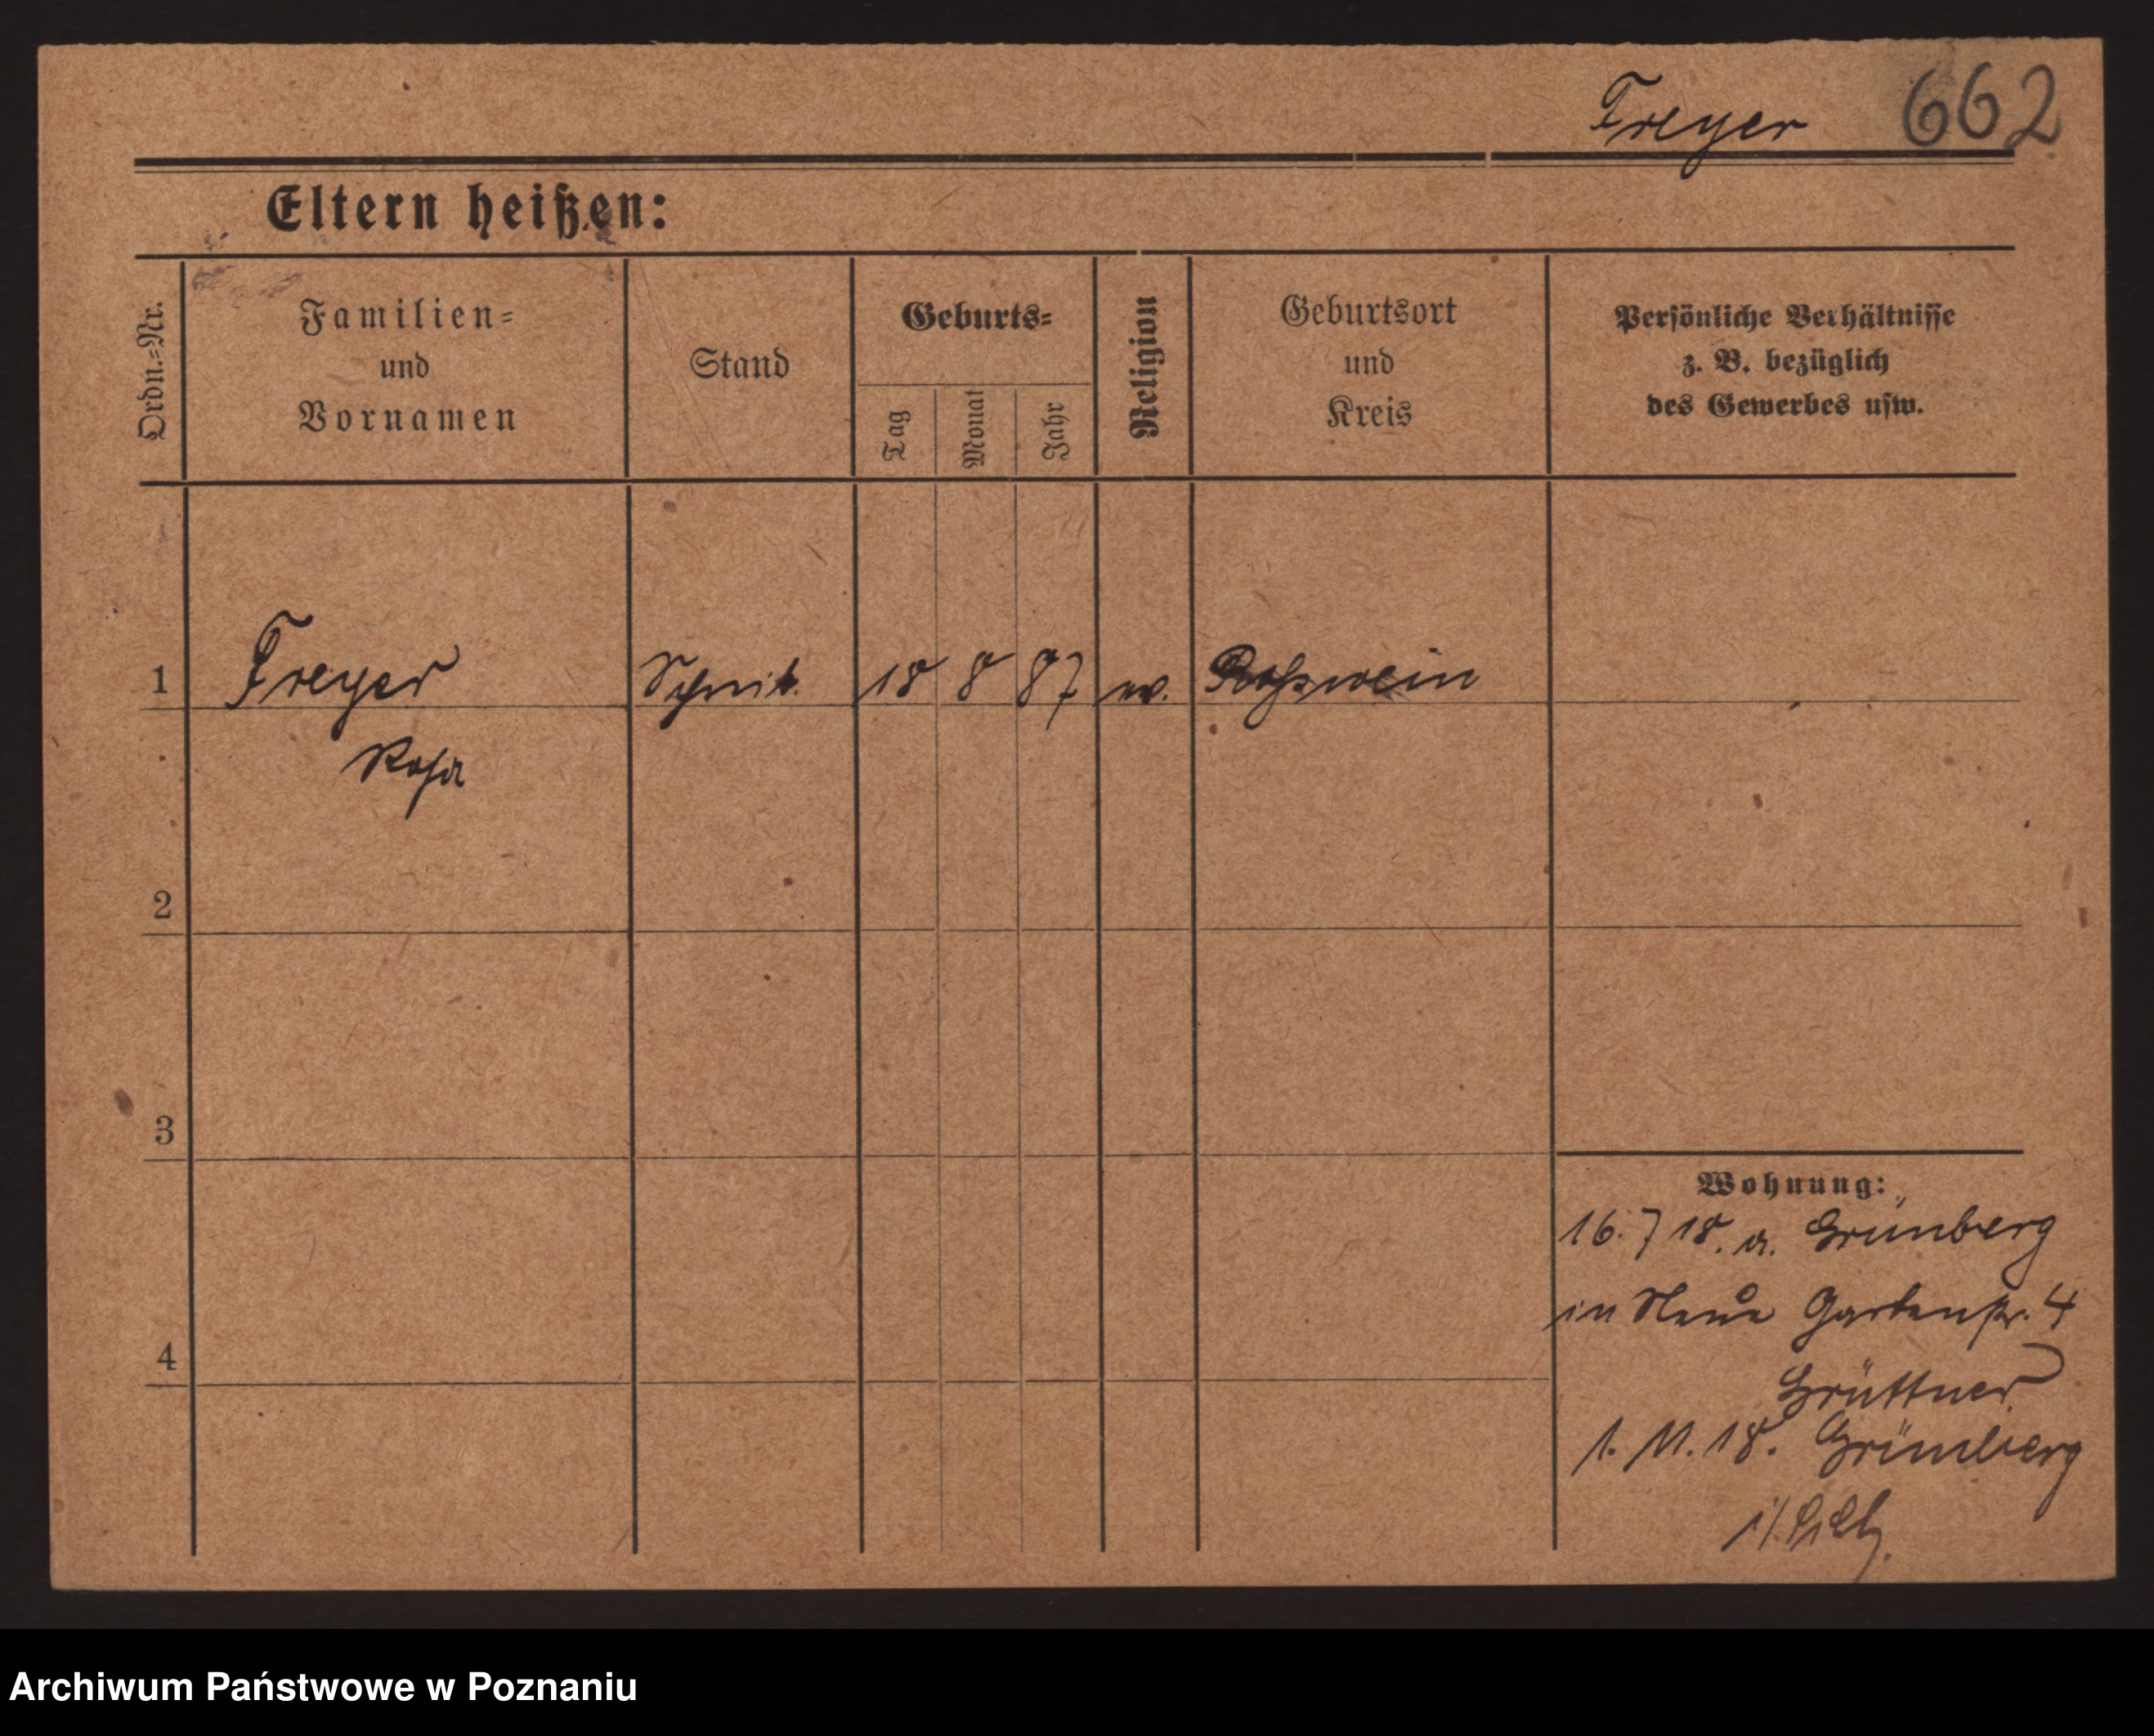 Freyer 662
Eltern heißen:
Ordn.=Nr.
Familien=
und
Vornamen
Stand
Geburts=
Tag
Monat
Jahr
Religion
Geburtsort
und
Kreis
Persönliche Verhältnisse
z. B. bezüglich
des Gewerbes usw.
1 Freyer 18 8 87 Roßwein
Rosa
2
3
4
Wohnung:
16. 7 18. a. Grünberg
in Neue Gartenstr. 4
Grüttner
1. 11. 18. Grünberg
i/Schl.
Archiwum Państwowe w Poznaniu